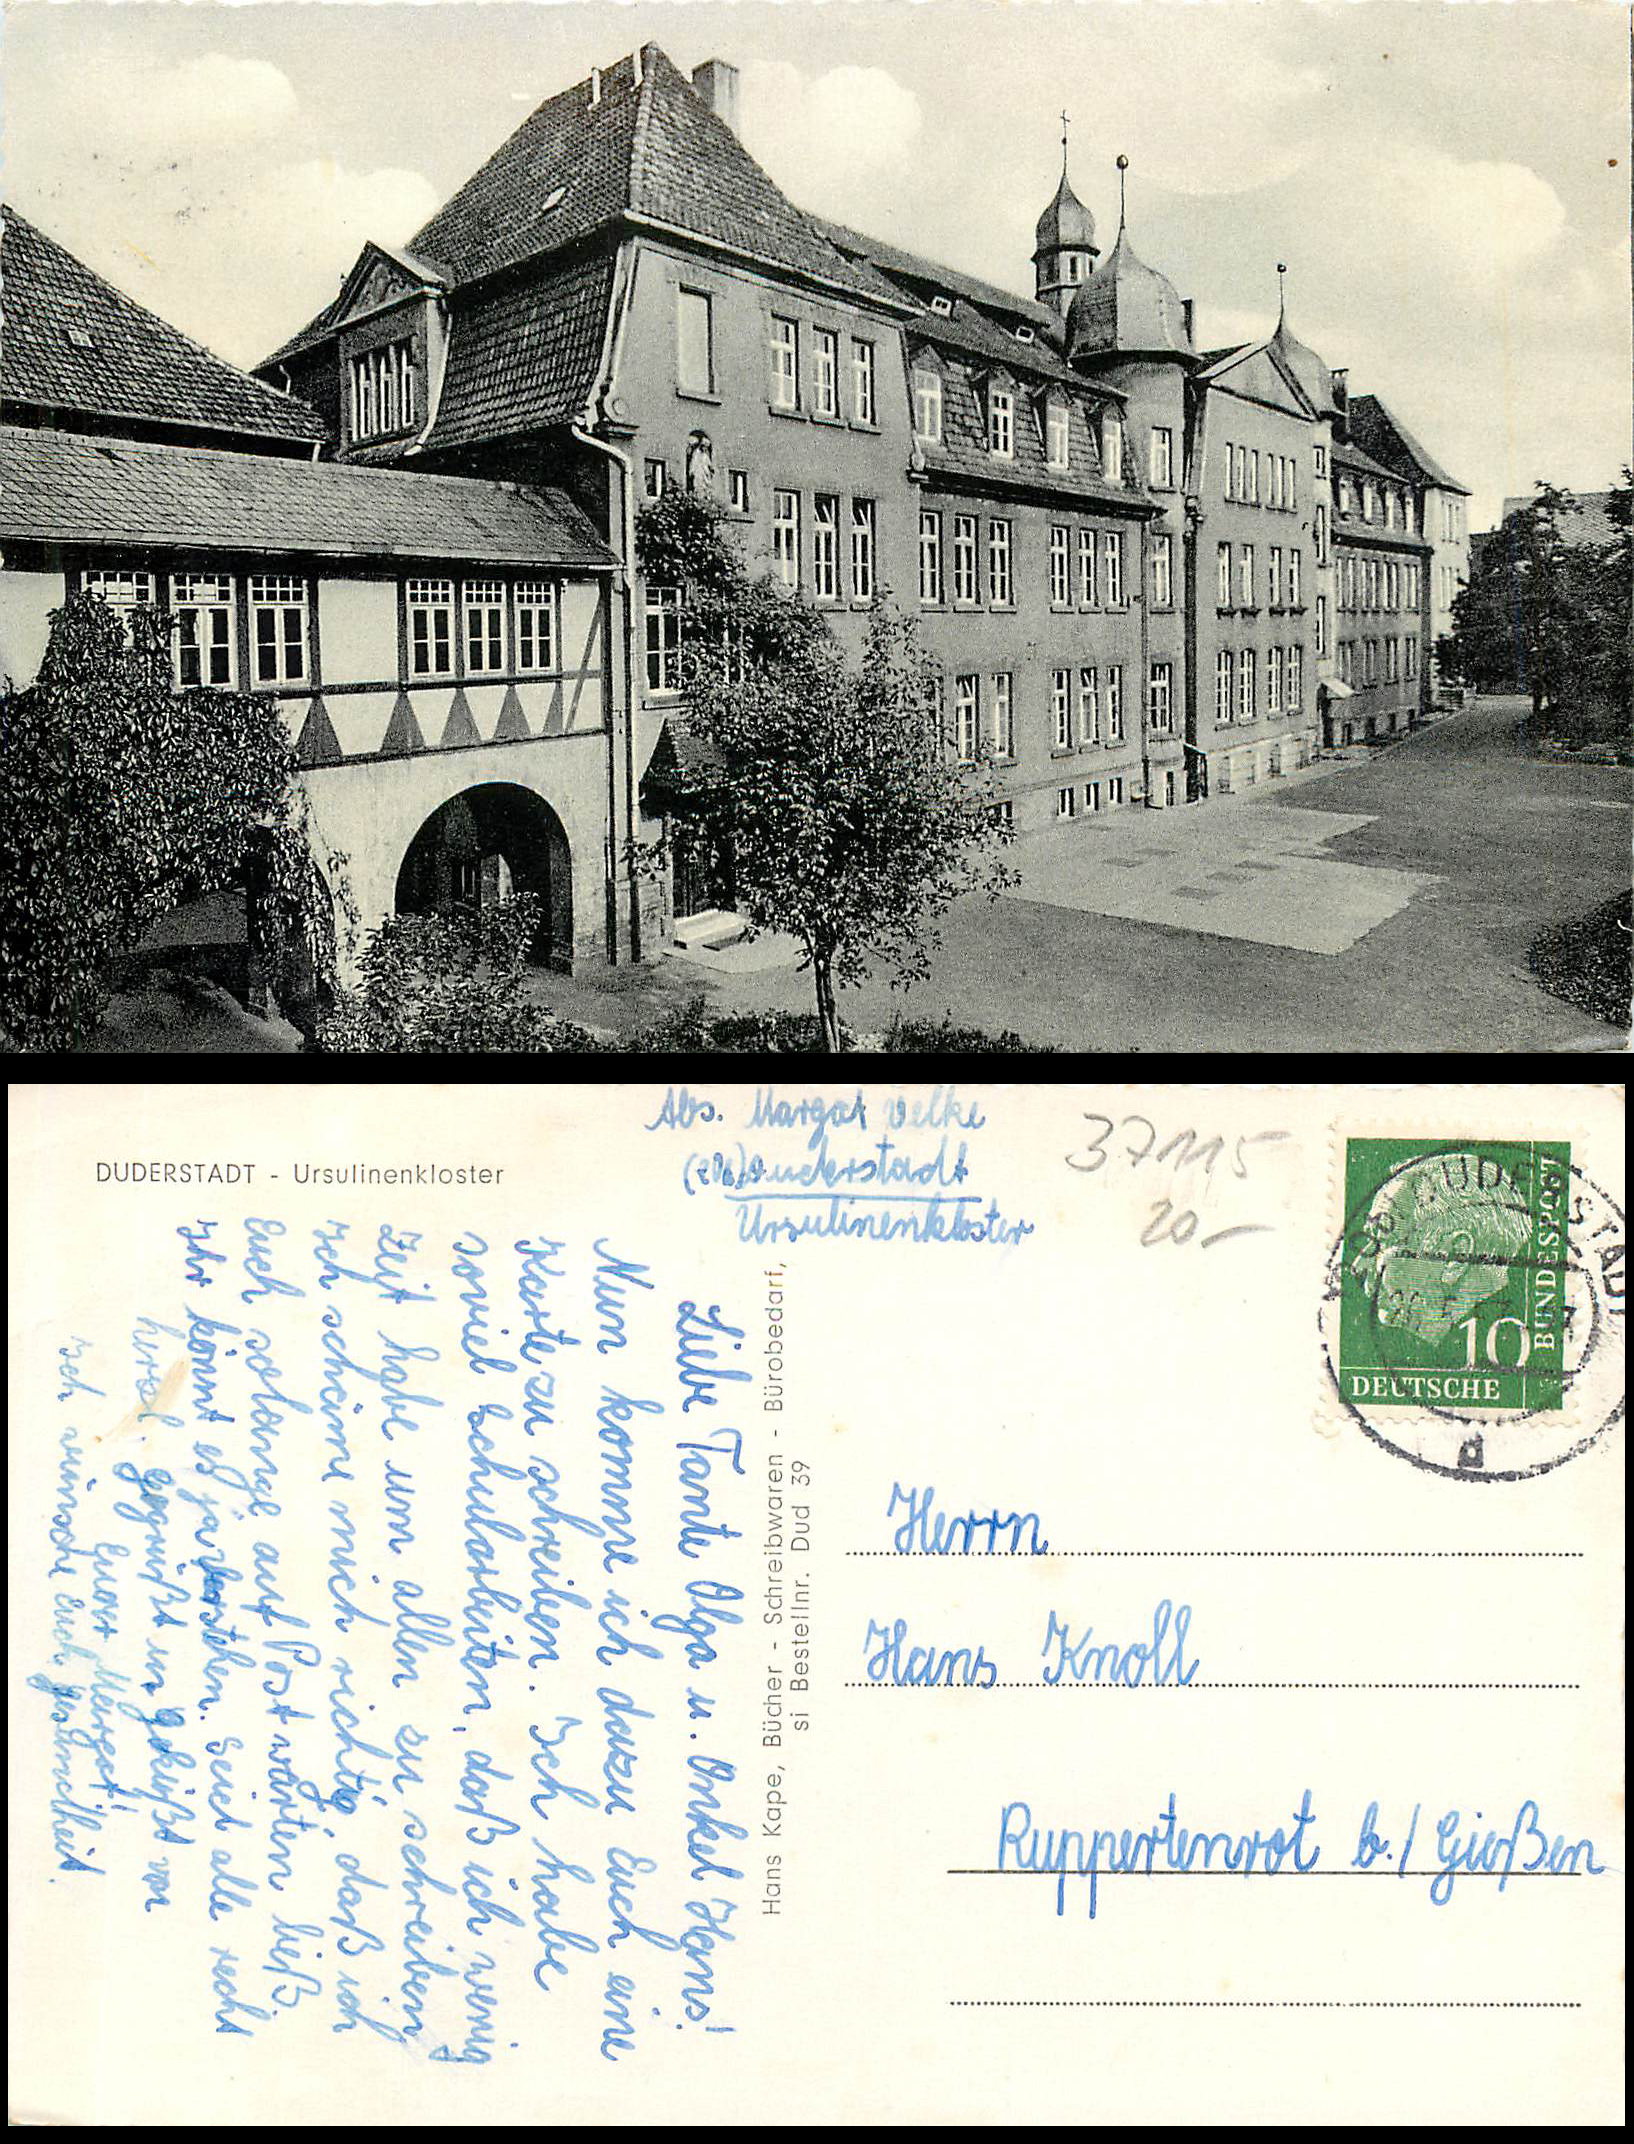 DUDERSTADT - Ursulinenkloster
Abs. Margot Velke
Duderstadt
Ursulinenkloster
37115
20,-
DUDERSTADT
DEUTSCHE
BUNDESPOST
10
a
Liebe Tante Olga u. Onkel Hans!
Nun komme ich dazu Euch eine
Karte zu schreiben. Ich habe
soviel Schularbeiten, daß ich wenig
Zeit habe um allen zu schreiben
Ich schäme mich richtig, daß ich
Euch solange auf Post warten ließ.
Ihr könnt es ja verstehen. Seid alle recht
herzl. gegrüßt u. geküßt von
Eurer Margot!
Ich wünsche euch gesundheit.
Hans Kape, Bücher - Schreibwaren - Bürobedarf,
si Bestellnr. Dud 39
Herrn
Hans Knoll
Ruppertenrot b./ Gießen